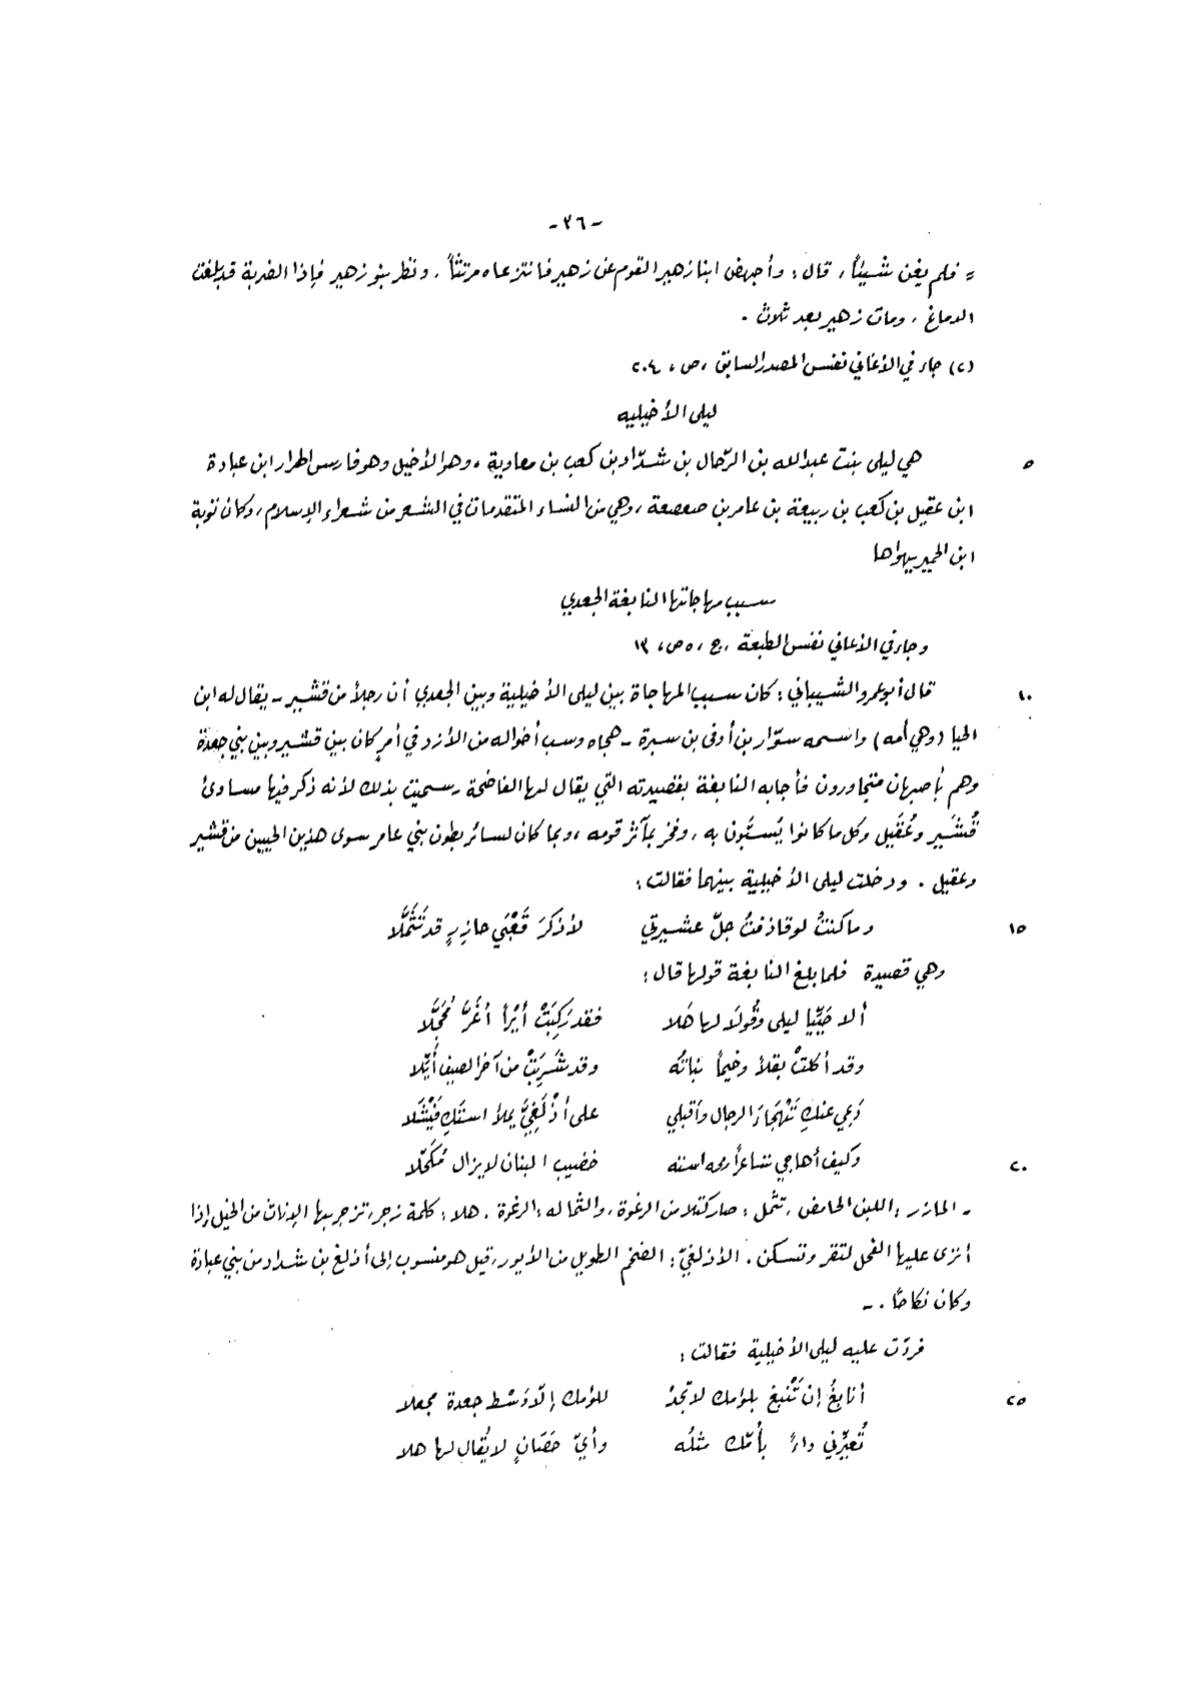 -٣٦-
= فلم يغن شيئاً، قال: وأجهض ابنا زهير القوم عن زهير فانتزعاه مرتثّاً، ونظر بنو زهير فإذا الضربة قد بلغت
الدماغ، ومات زهير بعد ثلاث.
(٢) جاء في الأغاني نفس المصدر السابق، ص، ٢٠٤
ليلى الأخيليه
٥ هي ليلى بنت عبدالله بن الرّحال بن شدّاد بن كعب بن معاوية، وهو الأخيل وهو فارس الهرار ابن عبادة
ابن عقيل بن كعب بن ربيعة بن عامر بن صعصعة، وهي من النساء المتقدمات في الشعر من شعراء الإسلام، وكان توبة
ابن الحمير يهواها
سبب مهاجاتها النابغة الجعدي
وجاء في الأغاني نفس الطبعة، ج، ٥ ص، ١٣
١٠ قال أبو عمرو الشيباني: كان سبب المهاجاة بين ليلى الأخيلية وبين الجعدي أن رجلاً من قشير - يقال له ابن
الحيا (وهي أمه) واسمه سوّار بن أوفى بن سبرة - هجاه وسب أخواله من الأزد في أمرٍ كان بين قشير وبين بني جعدة
وهم بأصبهان متجاورون فأجابه النابغة بقصيدته التي يقال لها الفاضحة - سميت بذلك لأنه ذكر فيها مساوئ
قُشَير وعُقَيل وكل ما كانوا يُسبّون به، وفخر بمآثر قومه، وبما كان لسائر بطون بني عامر سوى هذين الحيين من قشير
وعقيل. ودخلت ليلى الأخيلية بينهما فقالت:
١٥ وما كنتُ لو قاذفتُ جلّ عشيرتي لأذكرَ قَعْبَي حازرٍ قد تَثَمَّلا
وهي قصيدة فلما بلغ النابغة قولها قال:
ألا حَيِّيا ليلى وقُولَا لها هَلا فقد رَكِبَتْ أيْراً أغَرَّ مُحَجَّلا
وقد أكلتْ بقلاً وخيماً نباتُه وقد شَرِبَتْ من آخر الصيف أُيّلا
دَعي عنكِ تَهْجَاءَ الرجال وأقبلي على أذْلَغِيٍّ يملأ استَكِ فَيْشَلا
٢٠ وكيف أهاجي شاعراً رمحه استه خضيب البنان لا يزال مُكَحّلا
- الحازر: اللبن الحامض، تثمّل: صار كتلا من الرغوة، والثماله: الرغوة. هلا: كلمة زجر، تزجر بها الإناث من الخيل إذا
أنزى عليها الفحل لتقر وتسكن. الأذلغيّ: الضخم الطويل من الأيور، قيل هو منسوب إلى أذلغ بن شداد من بني عبادة
وكان نكاحاً. -
فردّت عليه ليلى الأخيلية فقالت:
٢٥ أنابغُ إن تَنْبغ بلؤمك لا تجدْ للؤمك إلّا وَسْط جعدة مجعلا
تُعيّرني داءً بأُمّك مثلُه وأيّ حَصَانٍ لا يُقال لها هلا